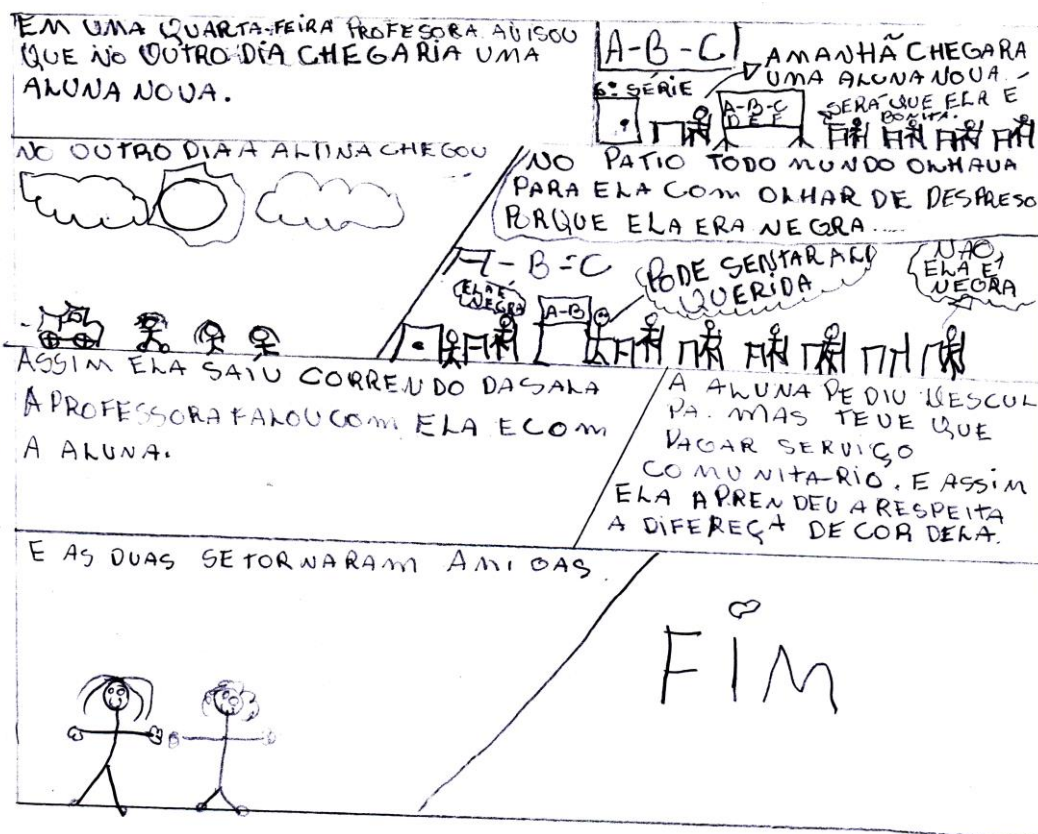 EM UMA QUARTA-FEIRA PROFESORA AVISOU
QUE NO OUTRO DIA CHEGARIA UMA
ALUNA NOVA.
A-B-C
6ª SÉRIE
AMANHÃ CHEGARA
UMA ALUNA NOVA.
A-B-C
D E F
SERÁ QUE ELA É
BONITA.
NO OUTRO DIA A ALUNA CHEGOU
NO PATIO TODO MUNDO OLHAVA
PARA ELA COM OLHAR DE DESPRESO
PORQUE ELA ERA NEGRA.....
A-B-C
ELA É
NEGRA
A-B
PODE SENTAR ALI
QUERIDA
NÃO
ELA É
NEGRA
ASSIM ELA SAIU CORRENDO DA SALA
A PROFESSORA FALOU COM ELA E COM
A ALUNA.
A ALUNA PEDIU DESCUL
PA. MAS TEVE QUE
PAGAR SERVIÇO
COMUNITA-RIO. E ASSIM
ELA APRENDEU A RESPEITA
A DIFEREÇA DE COR DELA.
E AS DUAS SE TORNARAM AMIGAS.
FIM